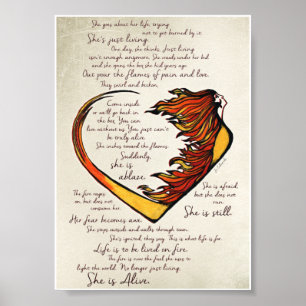 She goes about her life trying
not to get burned by it.
She's just living.
One day, she thinks, Just living
isn't enough anymore. She needs wide hid
and she opens the box she hid years ago.
Out pour the flames of pain and love.
They swirl and beckon.
Come inside
or we'll go back in
the box. You can
live without us. You just can't
be truly alive.
She inches toward the flames.
Suddenly,
she is
ablaze.
She is afraid
but she does not
run.
She is still.
The fire rages
on but does not
consume her.
Her fear becomes awe.
She steps outside and walks through town.
She's ignited they say. This is what life is for.
Life is to be lived on fire.
The fire is now the fuel she uses to
light the world. No longer just living.
She is Alive.